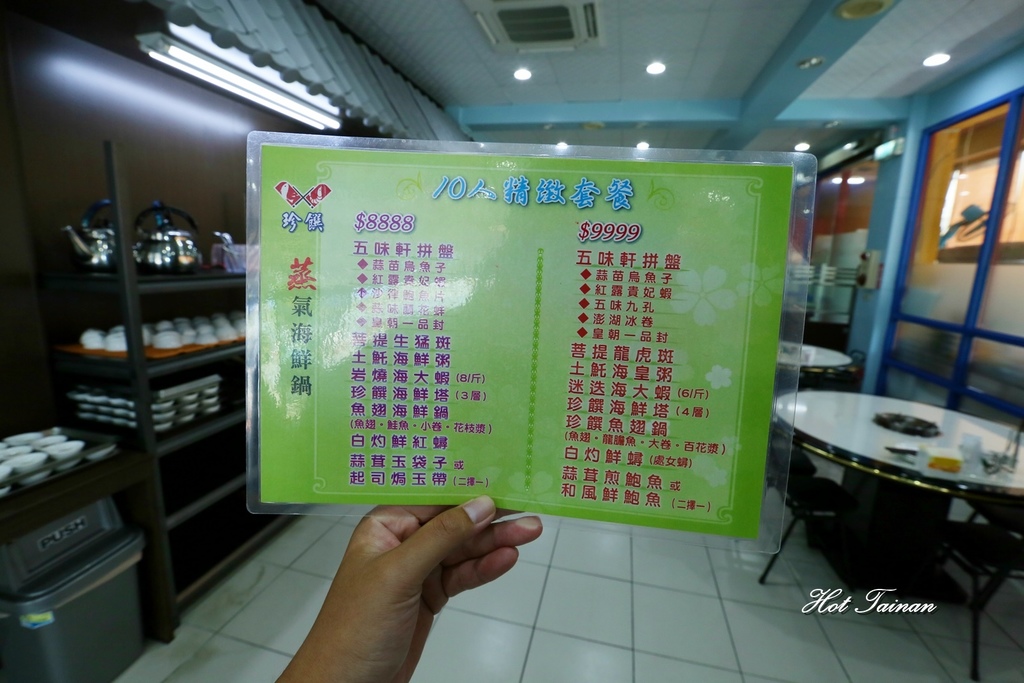 10人精緻套餐
珍饌
蒸氣海鮮鍋
$8888
五味軒拼盤
◆蒜苗烏魚子
◆紅露貴妃蝦
◆皇朝一品封
菩提生猛斑
土魠海鮮粥
岩燒海大蝦(8/斤)
珍饌海鮮塔(3層)
魚翅海鮮鍋
(魚翅・鮭魚・小卷・花枝漿)
白灼鮮紅蟳
蒜茸玉袋子 或
起司焗玉帶(二擇一)
$9999
五味軒拼盤
◆蒜苗烏魚子
◆紅露貴妃蝦
◆五味九孔
◆澎湖冰卷
◆皇朝一品封
菩提龍虎斑
土魠海皇粥
迷迭海大蝦(6/斤)
珍饌海鮮塔(4層)
珍饌魚翅鍋
(魚翅・龍膽魚・大卷・百花漿)
白灼鮮蟳(處女蟳)
蒜茸煎鮑魚 或
和風鮮鮑魚(二擇一)
PUSH
Hot Tainan